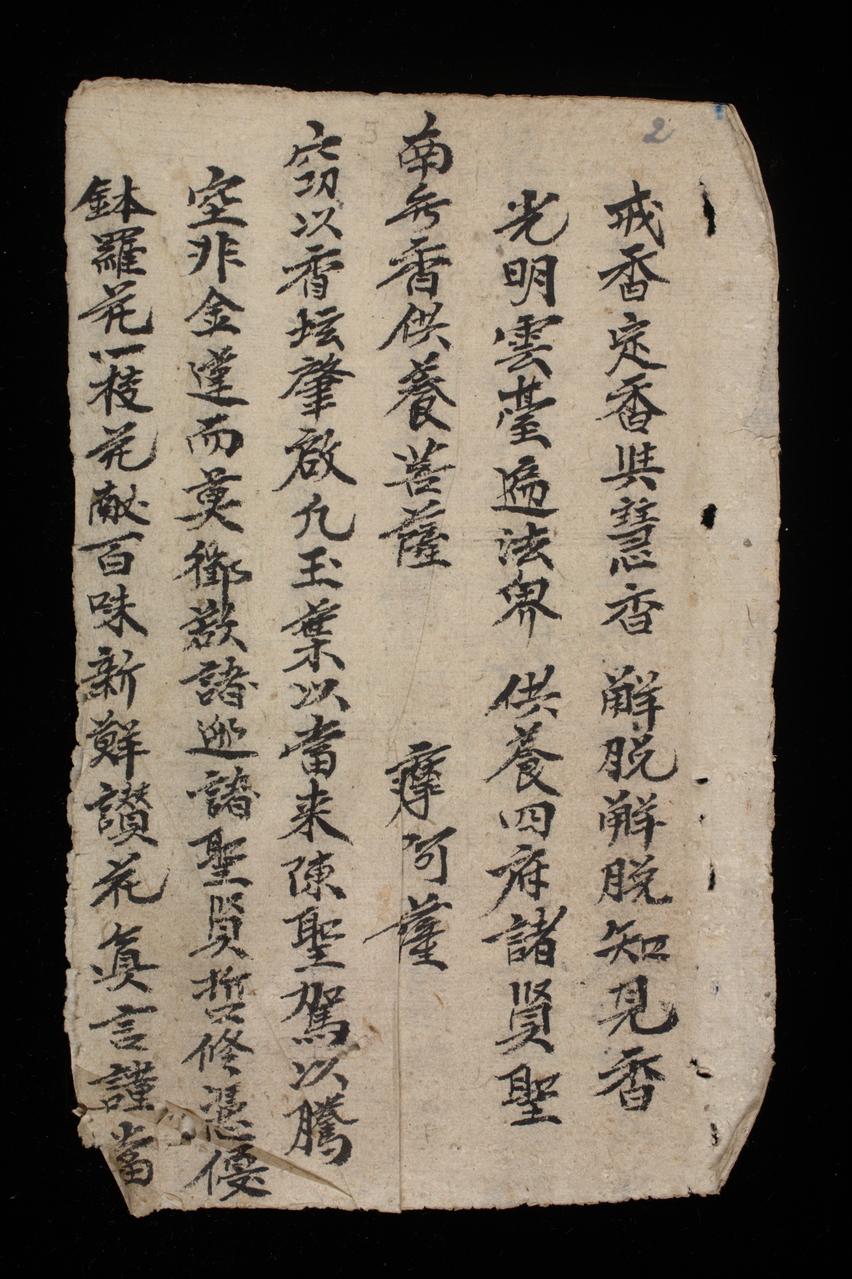 2
戒香定香與慧香 解脱解脱知見香
光明雲䑓遍法界 供養四府諸賢聖
南无香供養菩薩 摩阿薩
窃以香坛肇啟凢玉葉以當来陳聖駕以騰
空非金蓮而莫御諸聖賢哲修憑優
鉢羅花一枝花献百味新鮮讃花眞言謹當